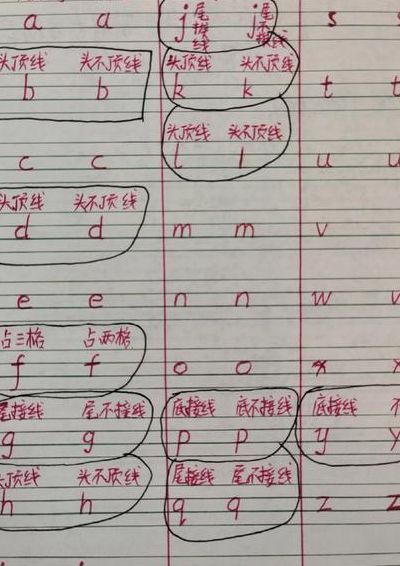 a a
头顶线 头不顶线
b b
c c
头顶线 头不顶线
d d
e e
占三格 占两格
f f
尾接线 尾不接线
g g
头顶线 头不顶线
h h
尾接线 尾不接线
j j
头顶线 头不顶线
k k
头顶线 头不顶线
l l
m m
n n
o o
底接线 底不接线
p p
尾接线 尾不接线
q q
s s
t t
u u
v
w w
x x
底接线 不
y y
z z